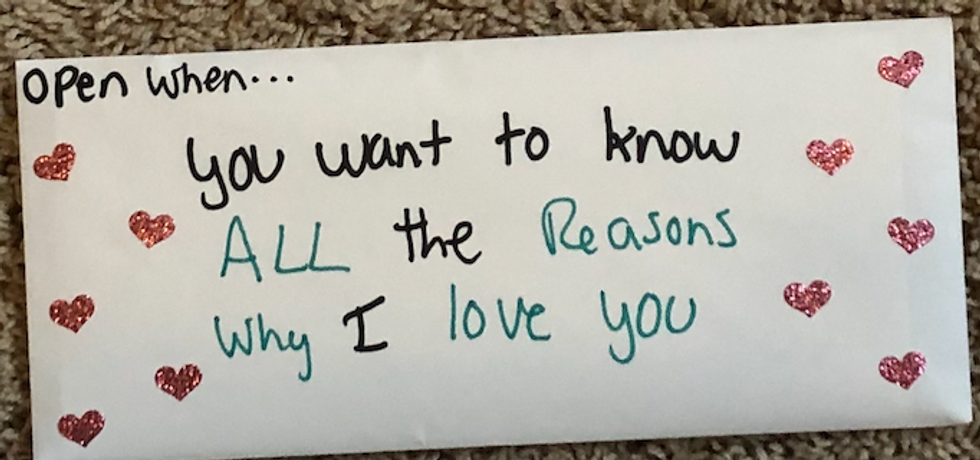 Open when...
you want to know
ALL the Reasons
Why I love you